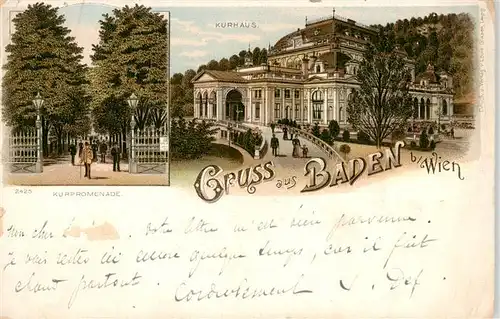 KURHAUS.
2425 KURPROMENADE.
Gruss aus BADEN b/Wien
mon cher votre lettre m'est bien parvenue.
Je vais rester ici encore quelque temps, car il fait
chaud partout. Cordialement